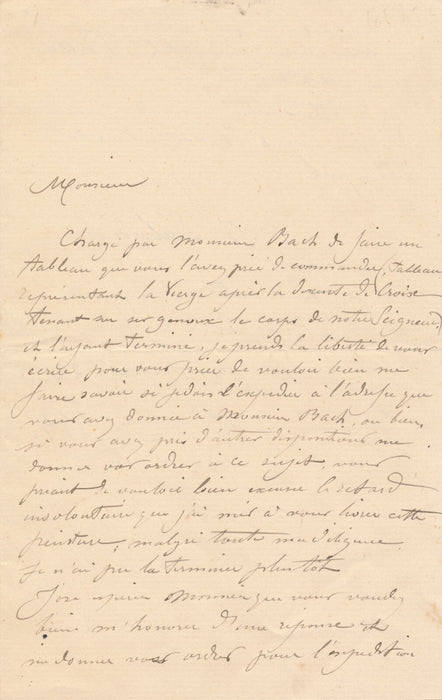 Monsieur
Chargé par Monsieur Bach de faire un
tableau que vous l'avez prié de commander, tableau
représentant la Vierge après la descente de Croix
tenant sur ses genoux le corps de notre Seigneur,
et l'ayant terminé, je prends la liberté de vous
écrire pour vous prier de vouloir bien me
faire savoir si je dois l'expédier à l'adresse que
vous avez donnée à Monsieur Bach, ou bien
si vous avez pris d'autres dispositions me
donner vos ordres à ce sujet, vous
priant de vouloir bien excuser le retard
involontaire que j'ai mis à vous livrer cette
peinture, malgré toute ma diligence
je n'ai pu la terminer plutôt
J'ose espérer Monsieur que vous voudrez
bien m'honorer d'une réponse et
me donner vos ordres pour l'expédition